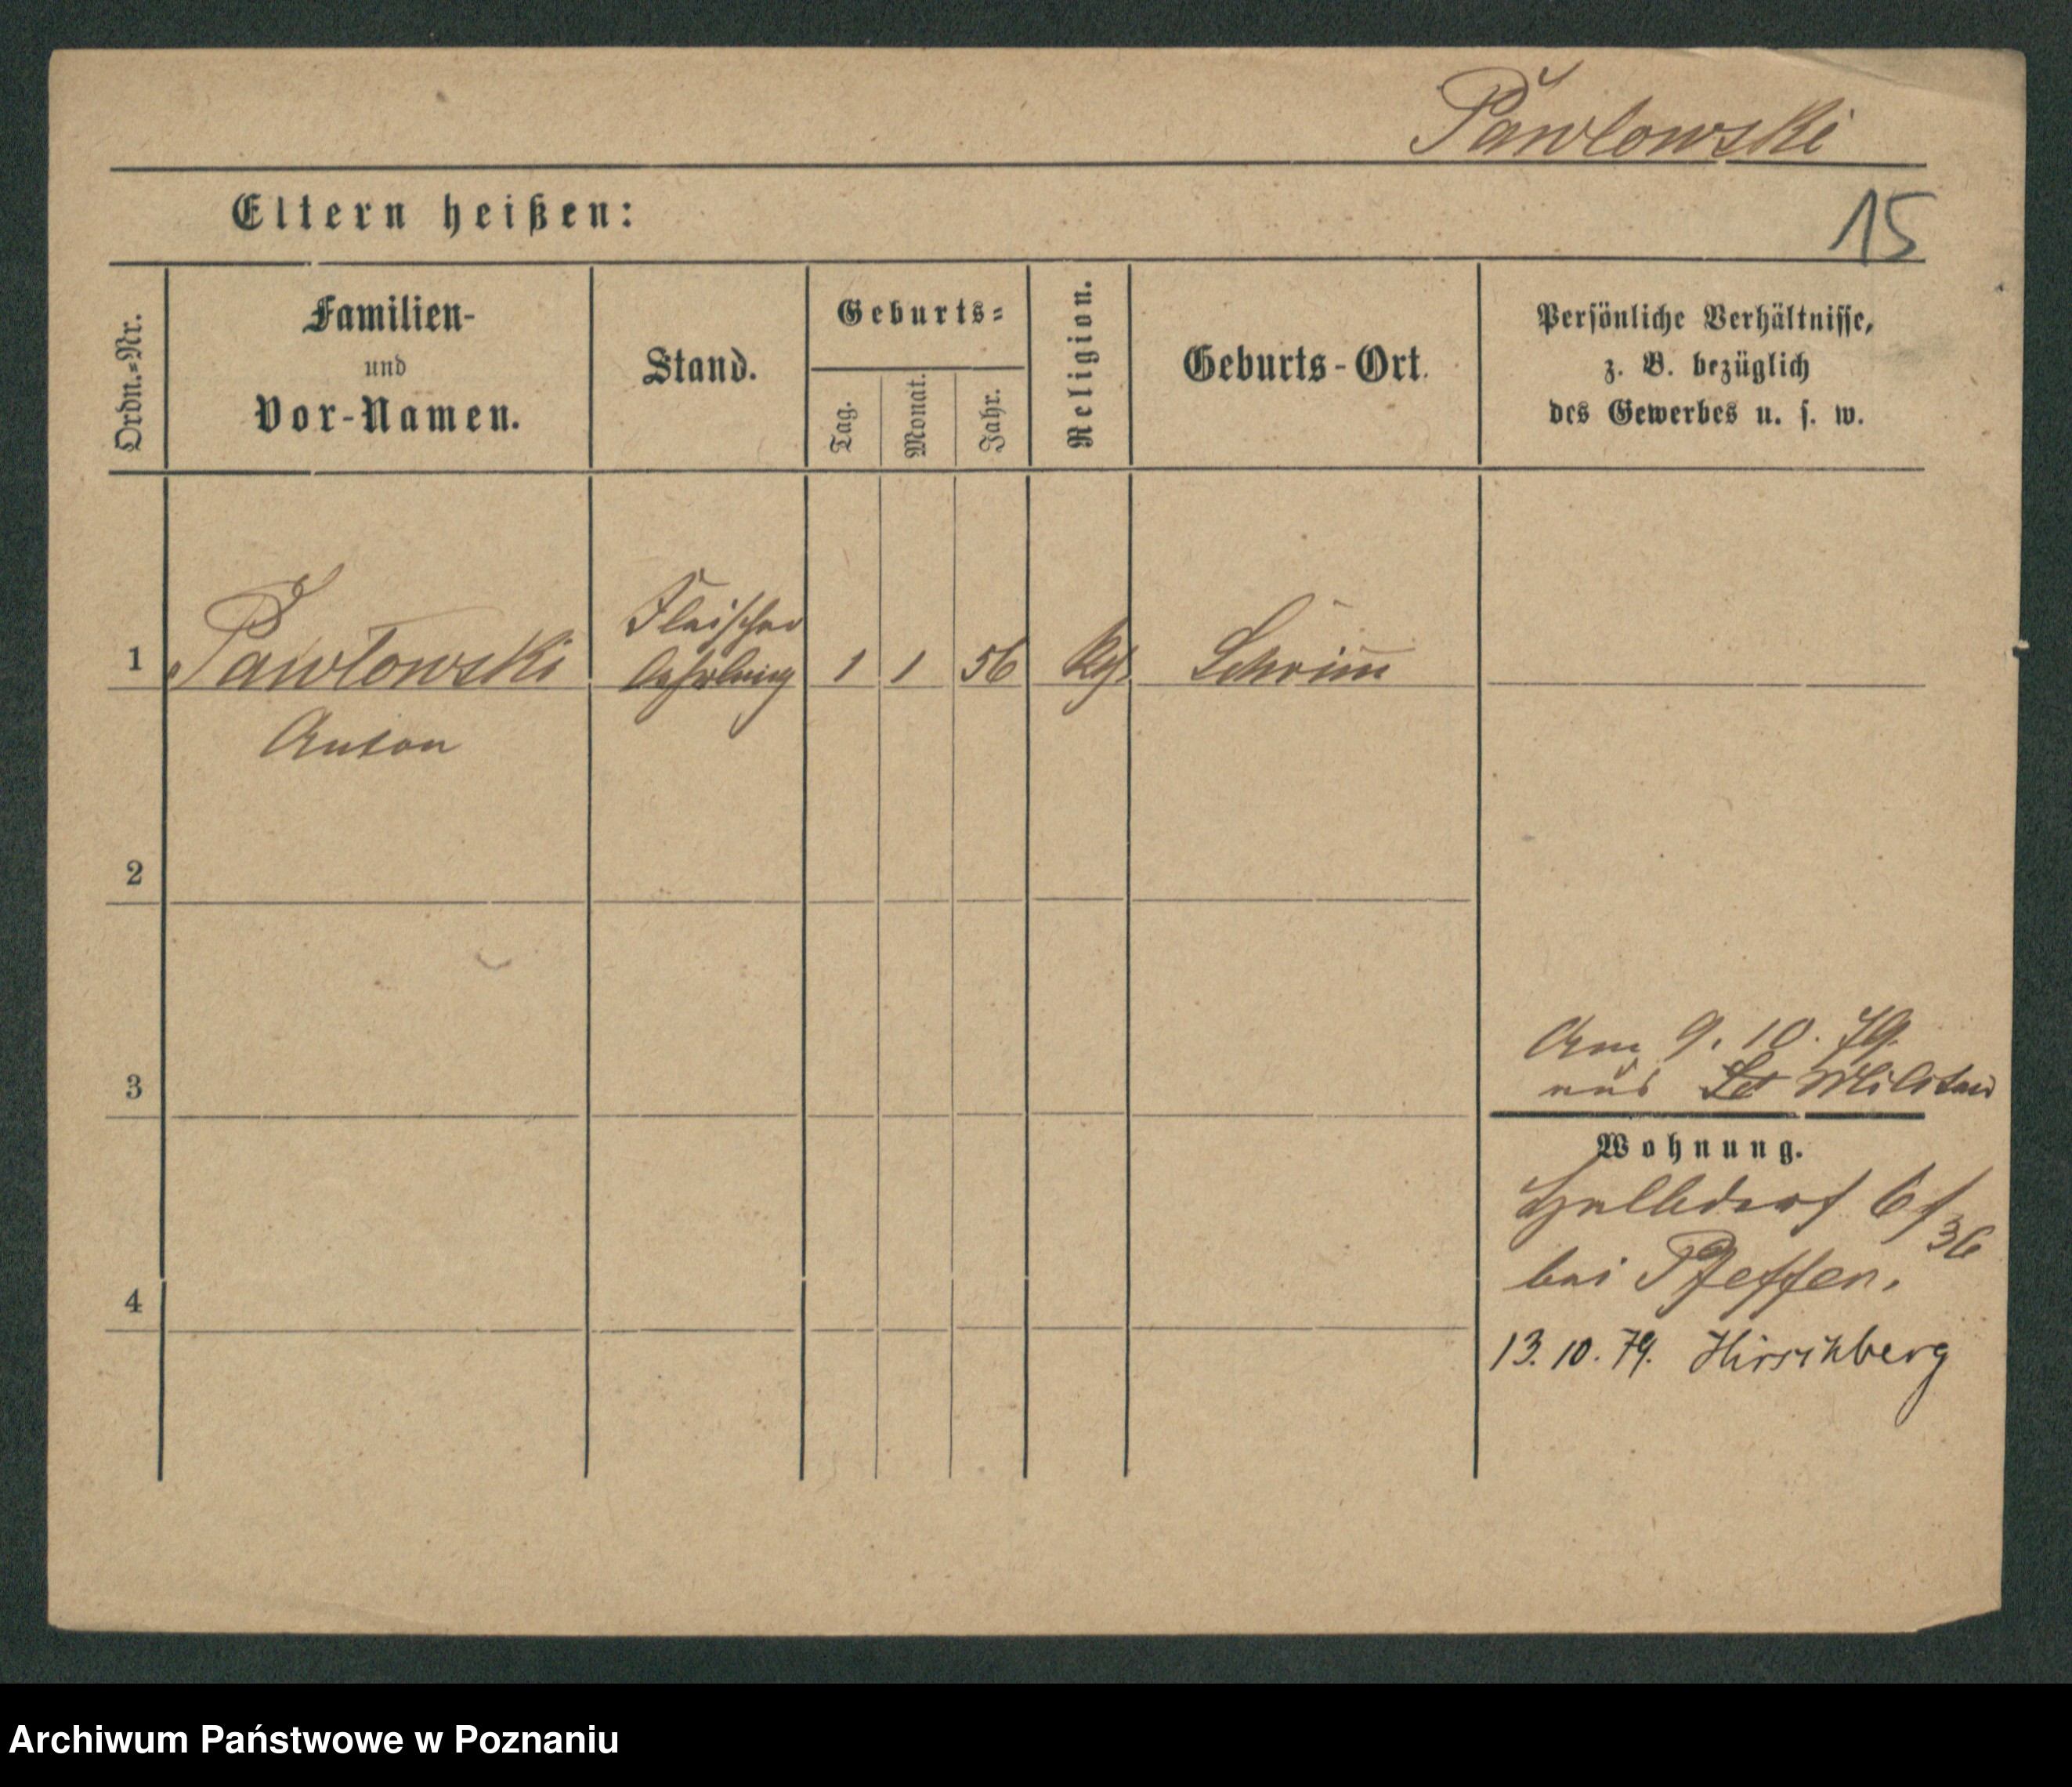 Pawlowski
15
Eltern heißen:
Ordn.=Nr.
Familien-
und
Vor-Namen.
Stand.
Geburts=
Tag.
Monat.
Jahr.
Religion.
Geburts-Ort.
Persönliche Verhältnisse,
z. B. bezüglich
des Gewerbes u. s. w.
Fleischer
1 Pawlowski 1 1 56 Kth Schrimm
Anton
2
3
Am 9. 10. 79.
aus Militair
Wohnung.
Halbdorf
36
bei Pfeffer.
4
13. 10. 79. Hirschberg
Archiwum Państwowe w Poznaniu